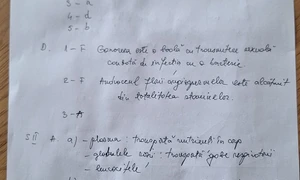 3 - a
4 - d
5 - b
D. 1 - F Gonoreea este o boală cu transmitere sexuală
cauzată de infecția cu o bacterie
2 - F Androceul florii angiospermelor este alcătuit
din totalitatea staminelor.
3 - A
III A a) - plasma : transportă nutrienți în corp
- globulele roșii : transportă gaze respiratorii
- leucocitele